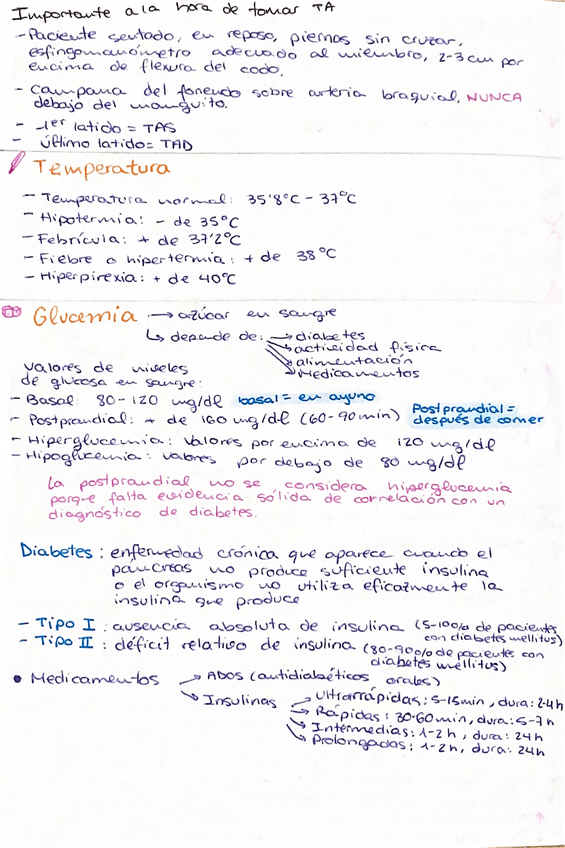 Importante a la hora de tomar TA
- Paciente sentado, en reposo, piernas sin cruzar,
esfingomanómetro adecuado al miembro, 2-3 cm por
encima de flexura del codo.
- Campana del fonendo sobre arteria braquial, NUNCA
debajo del manguito.
- 1er latido = TAS
- último latido = TAD
Temperatura
- Temperatura normal: 35'8°C - 37°C
- Hipotermia: - de 35°C
- Febrícula: + de 37'2°C
- Fiebre o hipertermia: + de 38°C
- Hiperpirexia: + de 40°C
Glucemia → azúcar en sangre
↳ depende de: → diabetes
→ actividad física
→ alimentación
→ Medicamentos
Valores de niveles
de glucosa en sangre:
- Basal: 80-120 mg/dl basal = en ayuno
- Postprandial: + de 160 mg/dl (60-90 min) Postprandial =
después de comer
- Hiperglucemia: Valores por encima de 120 mg/dl
- Hipoglucemia: valores por debajo de 80 mg/dl
La postprandial no se considera hiperglucemia
porque falta evidencia sólida de correlación con un
diagnóstico de diabetes.
Diabetes: enfermedad crónica que aparece cuando el
páncreas no produce suficiente insulina
o el organismo no utiliza eficazmente la
insulina que produce
- Tipo I: ausencia absoluta de insulina (5-10% de pacientes
con diabetes mellitus)
- Tipo II: déficit relativo de insulina (80-90% de pacientes con
diabetes mellitus)
• Medicamentos → ADOS (antidiabéticos orales)
→ Insulinas → Ultrarrápidas: 5-15min, dura: 2-4h
→ Rápidas: 30-60min, dura: 5-7h
→ Intermedias: 1-2h, dura: 24h
→ Prolongadas: 1-2h, dura: 24h